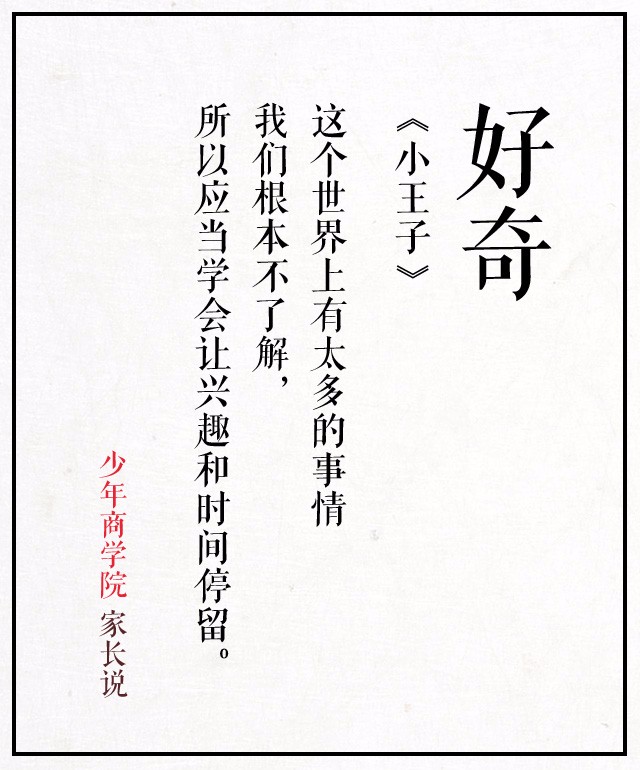 好奇
《小王子》
这个世界上有太多的事情
我们根本不了解，
所以应当学会让兴趣和时间停留。
少年商学院 家长说